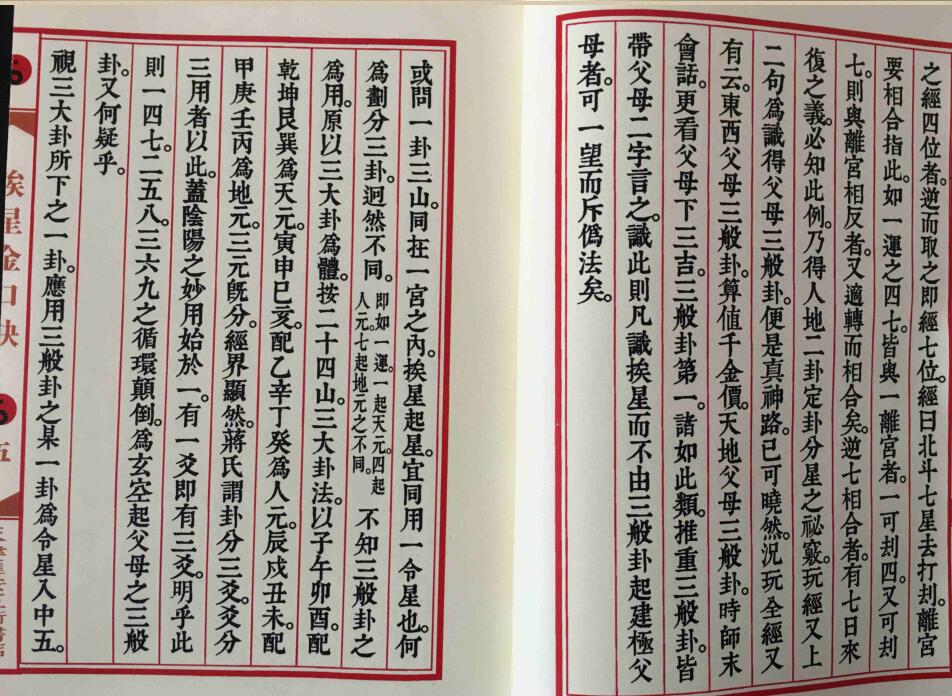 之經四位者。逆而取之即經七位。經曰北斗七星去打刦。離宮
要相合指此。如一運之四七。皆與一離宮者。一可刦四。又可刦
七。則與離宮相反者。又適轉而相合矣。逆七相合者。有七日來
復之義。必知此例。乃得人地二卦定卦分星之祕竅。玩經又上
二句為識得父母三般卦。便是真神路。已可曉然。況玩全經又
有云。東西父母三般卦。算值千金價。天地父母三般卦。時師未
會話。更看父母下三吉。三般卦第一。諸如此類。推重三般卦。皆
帶父母二字言之。識此則凡識挨星而不由三般卦起建極父
母者。可一望而斥偽法矣。
或問一卦三山。同在一宮之內。挨星起星。宜同用一令星也。何
為劃分三卦。迥然不同。即如一運。一起天元。四起人元。七起地元之不同。不知三般卦之
為用。原以三大卦為體。按二十四山。三大卦法。以子午卯酉。配
乾坤艮巽為天元。寅申巳亥。配乙辛丁癸為人元。辰戌丑未。配
甲庚壬丙為地元。三元既分。經界顯然。蔣氏謂卦分三爻。爻分
三用者以此。蓋陰陽之妙用始於一。有一爻即有三爻。明乎此
則一四七。二五八。三六九之循環顛倒。為玄空起父母之三般
卦。又何疑乎。
視三大卦所下之一卦。應用三般卦之某一卦為令星入中五。
挨星金口訣
五